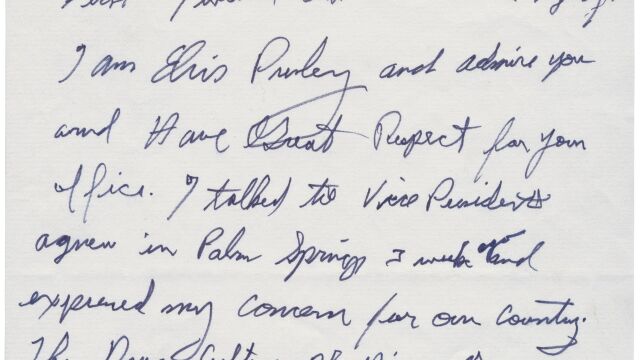 First
I am Elvis Presley and admire you
and Have Great Respect for your
office. I talked to Vice President
agnew in Palm Springs week ago and
expressed my concern for our country.
The Drug Culture